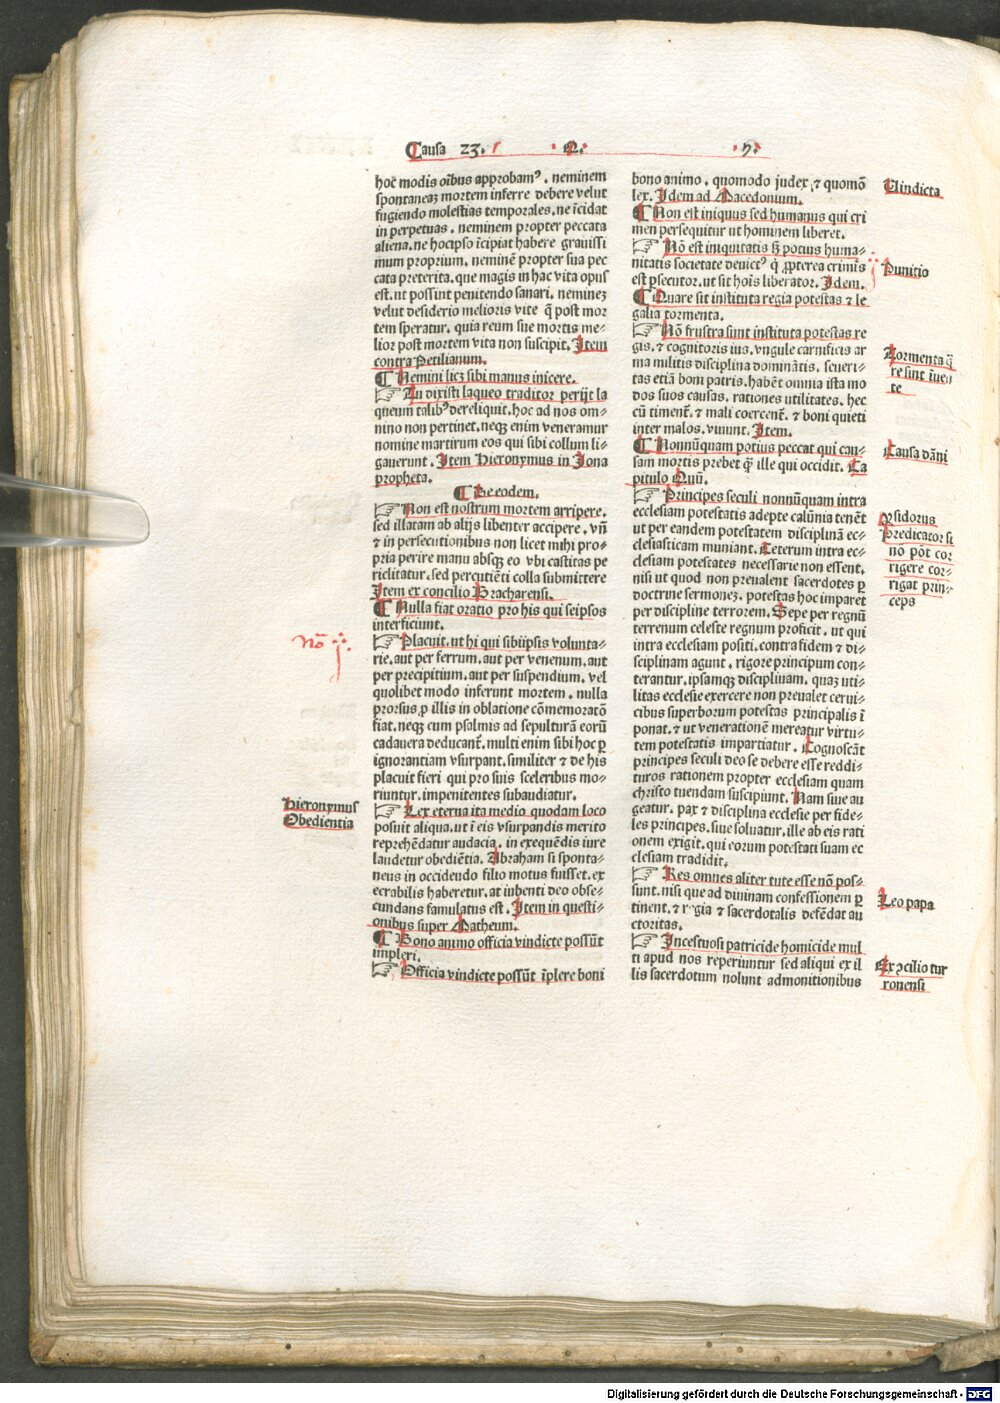 Causa 23. .Q. .5.
hoc modis oībus approbamꝰ . neminem
spontaneaȝ mortem inferre debere velut
fugiendo molestias temporales. ne īcidat
in perpetuas . neminem propter peccata
aliena. ne hocipso īcipiat habere grauissi
mum proprium. neminē propter sua pec
cata preterita. que magis in hac vita opus
est. ut possint penitendo sanari. nemineȝ
velut desiderio melioris vite q̄ post mor
tem speratur. quia reum sue mortis me⸗
lior post mortem vita non suscipit. Item
contra Petilianum.
¶ Nemini licȝ sibi manus inicere.
☞ Tu dixisti laqueo traditor perijt la
queum talibꝰ dereliquit. hoc ad nos om⸗
nino non pertinet. neqȝ enim veneramur
nomine martirum eos qui sibi collum li⸗
gauerunt. Item Hieronymus in Jona
propheta.
¶ De eodem.
☞ Non est nostrum mortem arripere.
sed illatam ab alijs libenter accipere. vñ
⁊ in persecutionibus non licet mihi pro⸗
pria perire manu absqȝ eo vbi castitas pe
riclitatur. sed percutiēti colla submittere
Item ex concilio Bracharensi.
¶ Nulla fiat oratio pro his qui seipsos
interficiunt.
☞ Placuit. ut hi qui sibiipsis volunta⸗
rie. aut per ferrum. aut per venenum. aut
per precipitium. aut per suspendium. vel
quolibet modo inferunt mortem. nulla
prorsus ꝓ illis in oblatione cōmemoratō
fiat. neqȝ cum psalmis ad sepulturā eorū
cadauera deducant̄. multi enim sibi hoc ꝑ
ignorantiam vsurpant. similiter ⁊ de his
placuit fieri qui pro suis sceleribus mo⸗
riuntur. impenitentes subaudiatur.
☞ Lex eterna ita medio quodam loco
posuit aliqua. ut ī eis vsurpandis merito
reprehēdatur audacia. in exequēdis iure
laudetur obediētia. Abraham si sponta⸗
neus in occidendo filio motus fuisset. ex
ecrabilis haberetur. at iubenti deo obse⸗
cundans famulatus est. Item in questi⸗
onibus super Matheum.
¶ Bono animo officia vindicte possūt
impleri.
☞ Officia vindicte possūt īplere boni
Nō
Hieronymus
Obedientia
bono animo. quomodo judex. ⁊ quomō
lex. Idem ad Macedonium.
¶ Non est iniquus sed humanus qui cri
men persequitur ut hominem liberet.
☞ Nō est iniquitatis sȝ potius huma⸗
nitatis societate deuictꝰ q̇ ꝓpterea crimīs
est ꝑsecutor. ut sit hoīs liberator. Idem.
¶ Quare sit instituta regia potestas ⁊ le
galia tormenta.
☞ Nō frustra sunt instituta potestas re
gis. ⁊ cognitoris ius. vngule carnificis ar
ma militis disciplina dominātis. seueri⸗
tas etiā boni patris. habēt omnia ista mo
dos suos causas. rationes utilitates. hec
cū timent̄. ⁊ mali coercent̄. ⁊ boni quieti
inter malos. viuunt. Item.
¶ Nonnūquam potius peccat qui cau⸗
sam mortis prebet q̄ ille qui occidit. Ca
pitulo Quū.
☞ Principes seculi nonnūquam intra
ecclesiam potestatis adepte calūnia tenēt
ut per eandem potestatem disciplinā ec⸗
clesiasticam muniant. Ceterum intra ec⸗
clesiam potestates necessarie non essent.
nisi ut quod non preualent sacerdotes ꝑ
doctrine sermoneȝ. potestas hoc imparet
per discipline terrorem. Sepe per regnū
terrenum celeste regnum proficit. ut qui
intra ecclesiam positi. contra fidem ⁊ di⸗
sciplinam agunt. rigore principum con⸗
terantur. ipsamqȝ disciplinam. quaȝ uti⸗
litas ecclesie exercere non preualet cerui⸗
cibus superborum potestas principalis ī
ponat. ⁊ ut venerationē mereatur virtu⸗
tem potestatis impartiatur. Cognoscāt
principes seculi deo se debere esse reddi⸗
turos rationem propter ecclesiam quam
christo tuendam suscipiunt. Nam siue au
geatur. pax ⁊ disciplina ecclesie per fide⸗
les principes. siue soluatur. ille ab eis rati
onem exigit. qui eorum potestati suam ec
clesiam tradidit.
☞ Res omnes aliter tute esse nō pos⸗
sunt. nisi que ad diuinam confessionem ꝑ
tinent. ⁊ regia ⁊ sacerdotalis defēdat au
ctoritas.
☞ Incestuosi patricide homicide mul
ti apud nos reperiuntur sed aliqui ex il
lis sacerdotum nolunt admonitionibus
Uindicta
Punitio
Tormenta q̄
re sint īuen
te
Causa dāni
Ysidorus
Predicator si
nō pōt cor
rigere cor⸗
rigat prin⸗
ceps
Leo papa
Ex ꝯcilio tur
ronensi
Digitalisierung gefördert durch die Deutsche Forschungsgemeinschaft - DFG